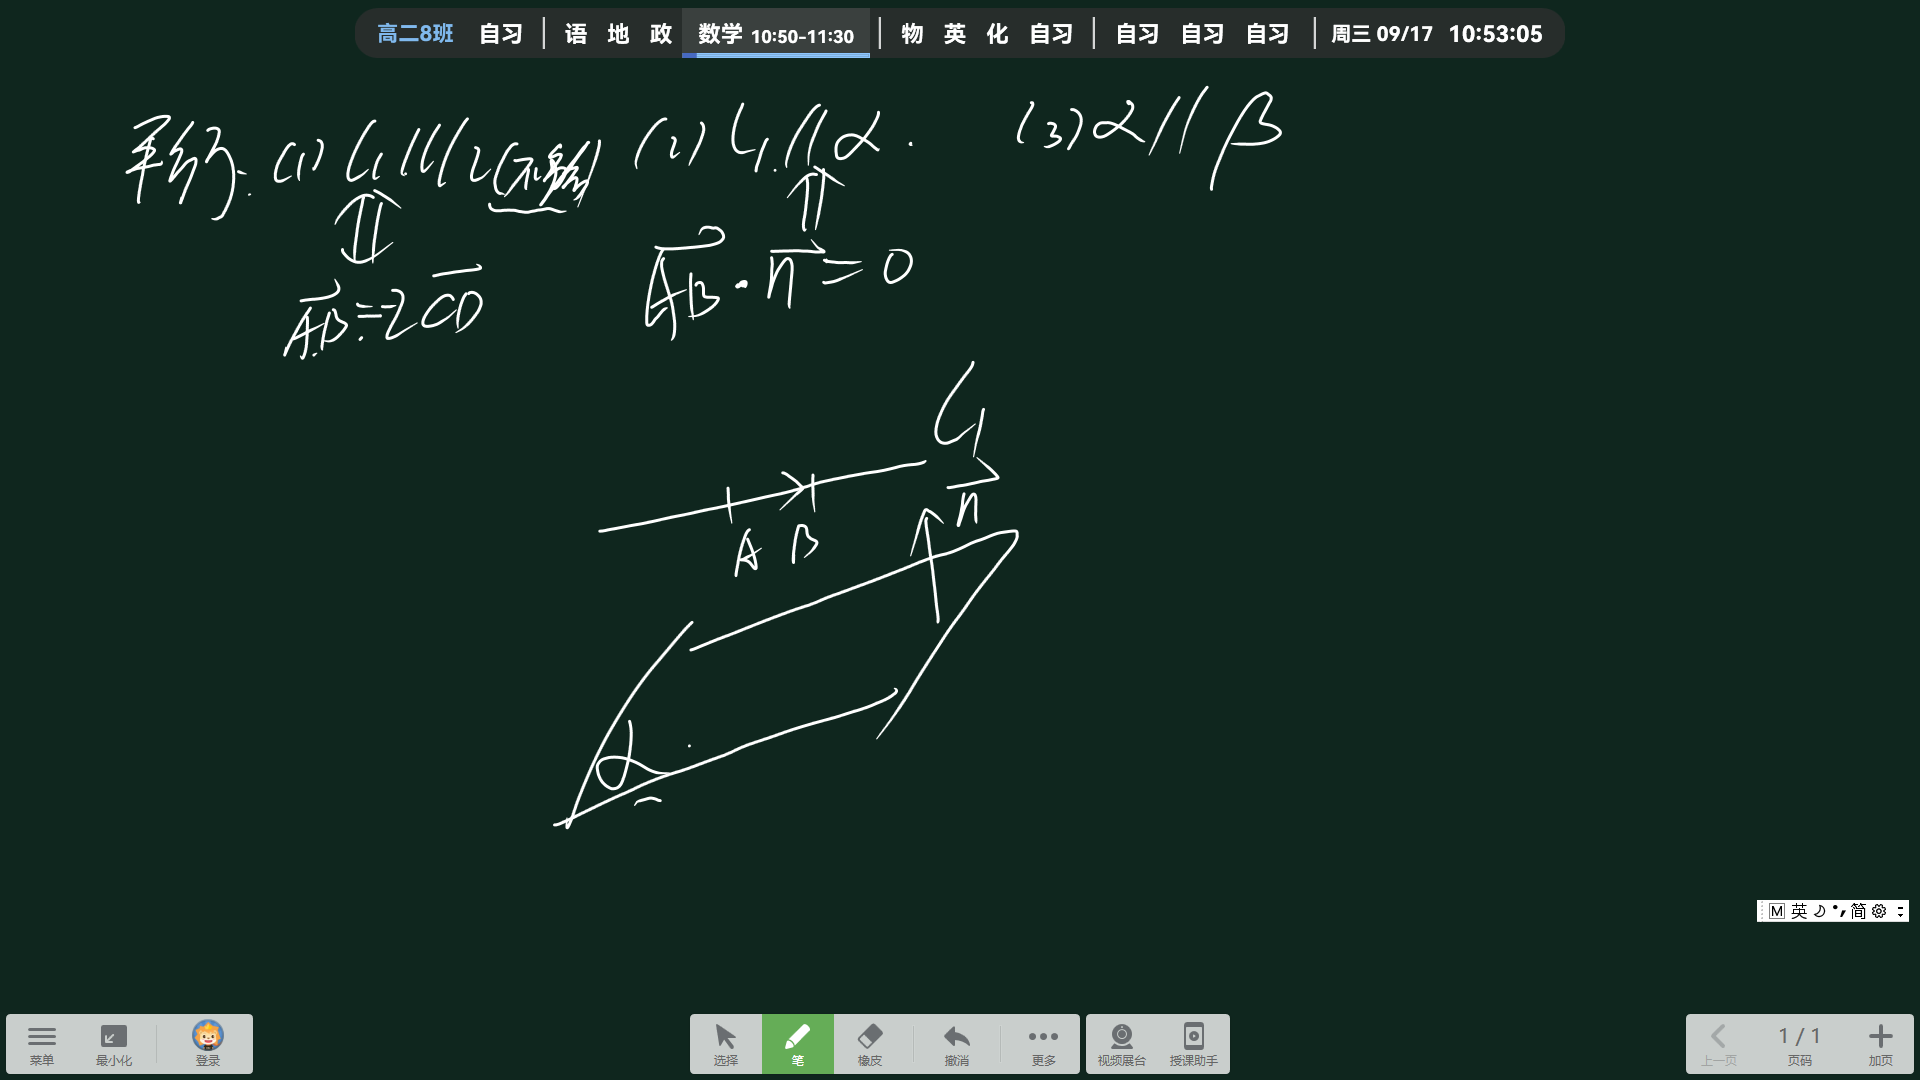 高二8班 自习 | 语 地 政 数学 10:50-11:30 | 物 英 化 自习 | 自习 自习 自习 | 周三 09/17 10:53:05
平行: (1) l₁∥l₂(不重合) (2) l₁∥α. (3) α∥β
⇕ ⇑
AB=λCD AB·n=0
l₁
n
A B
α
M 英 简
菜单 最小化 登录 选择 笔 橡皮 撤消 更多 视频展台 授课助手 上一页 1 / 1 页码 加页